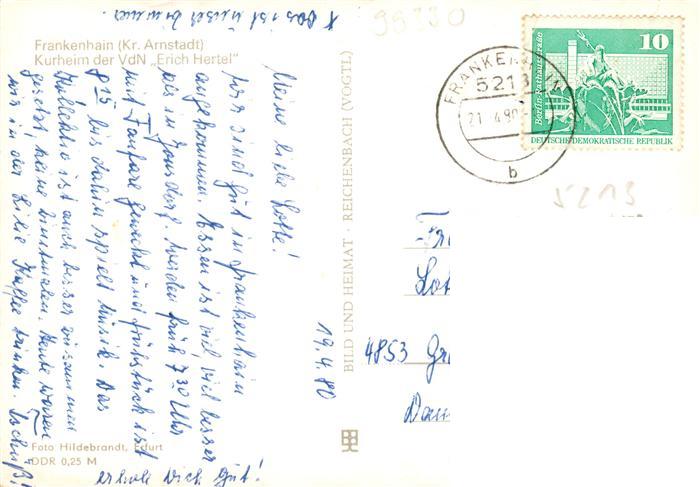 + das ist unser Zimmer.
98330
Frankenhain (Kr. Arnstadt)
Kurheim der VdN „Erich Hertel"
19.4.80
Meine liebe Lotte!
Wir sind gut in Frankenhain
angekommen. Essen ist viel viel besser
als in Jonsdorf. Werden früh 7³⁰ Uhr
mit Fanfare geweckt und Frühstück ist
8¹⁵ bis dahin spielt Musik. Das
Kollektiv ist auch besser zusammen
gesetzt, keine Einstmalen. Heute waren
wir in der Lilie Kaffee trinken. Tschüß!
erhole Dich gut!
Foto Hildebrandt, Erfurt
DDR 0,25 M
BILD UND HEIMAT · REICHENBACH (VOGTL)
FRANKENHAIN
5213
21. 4.80
b
10
Berlin, Rathausstraße
DEUTSCHE DEMOKRATISCHE REPUBLIK
5213
Fr
Lot
4853 Gr